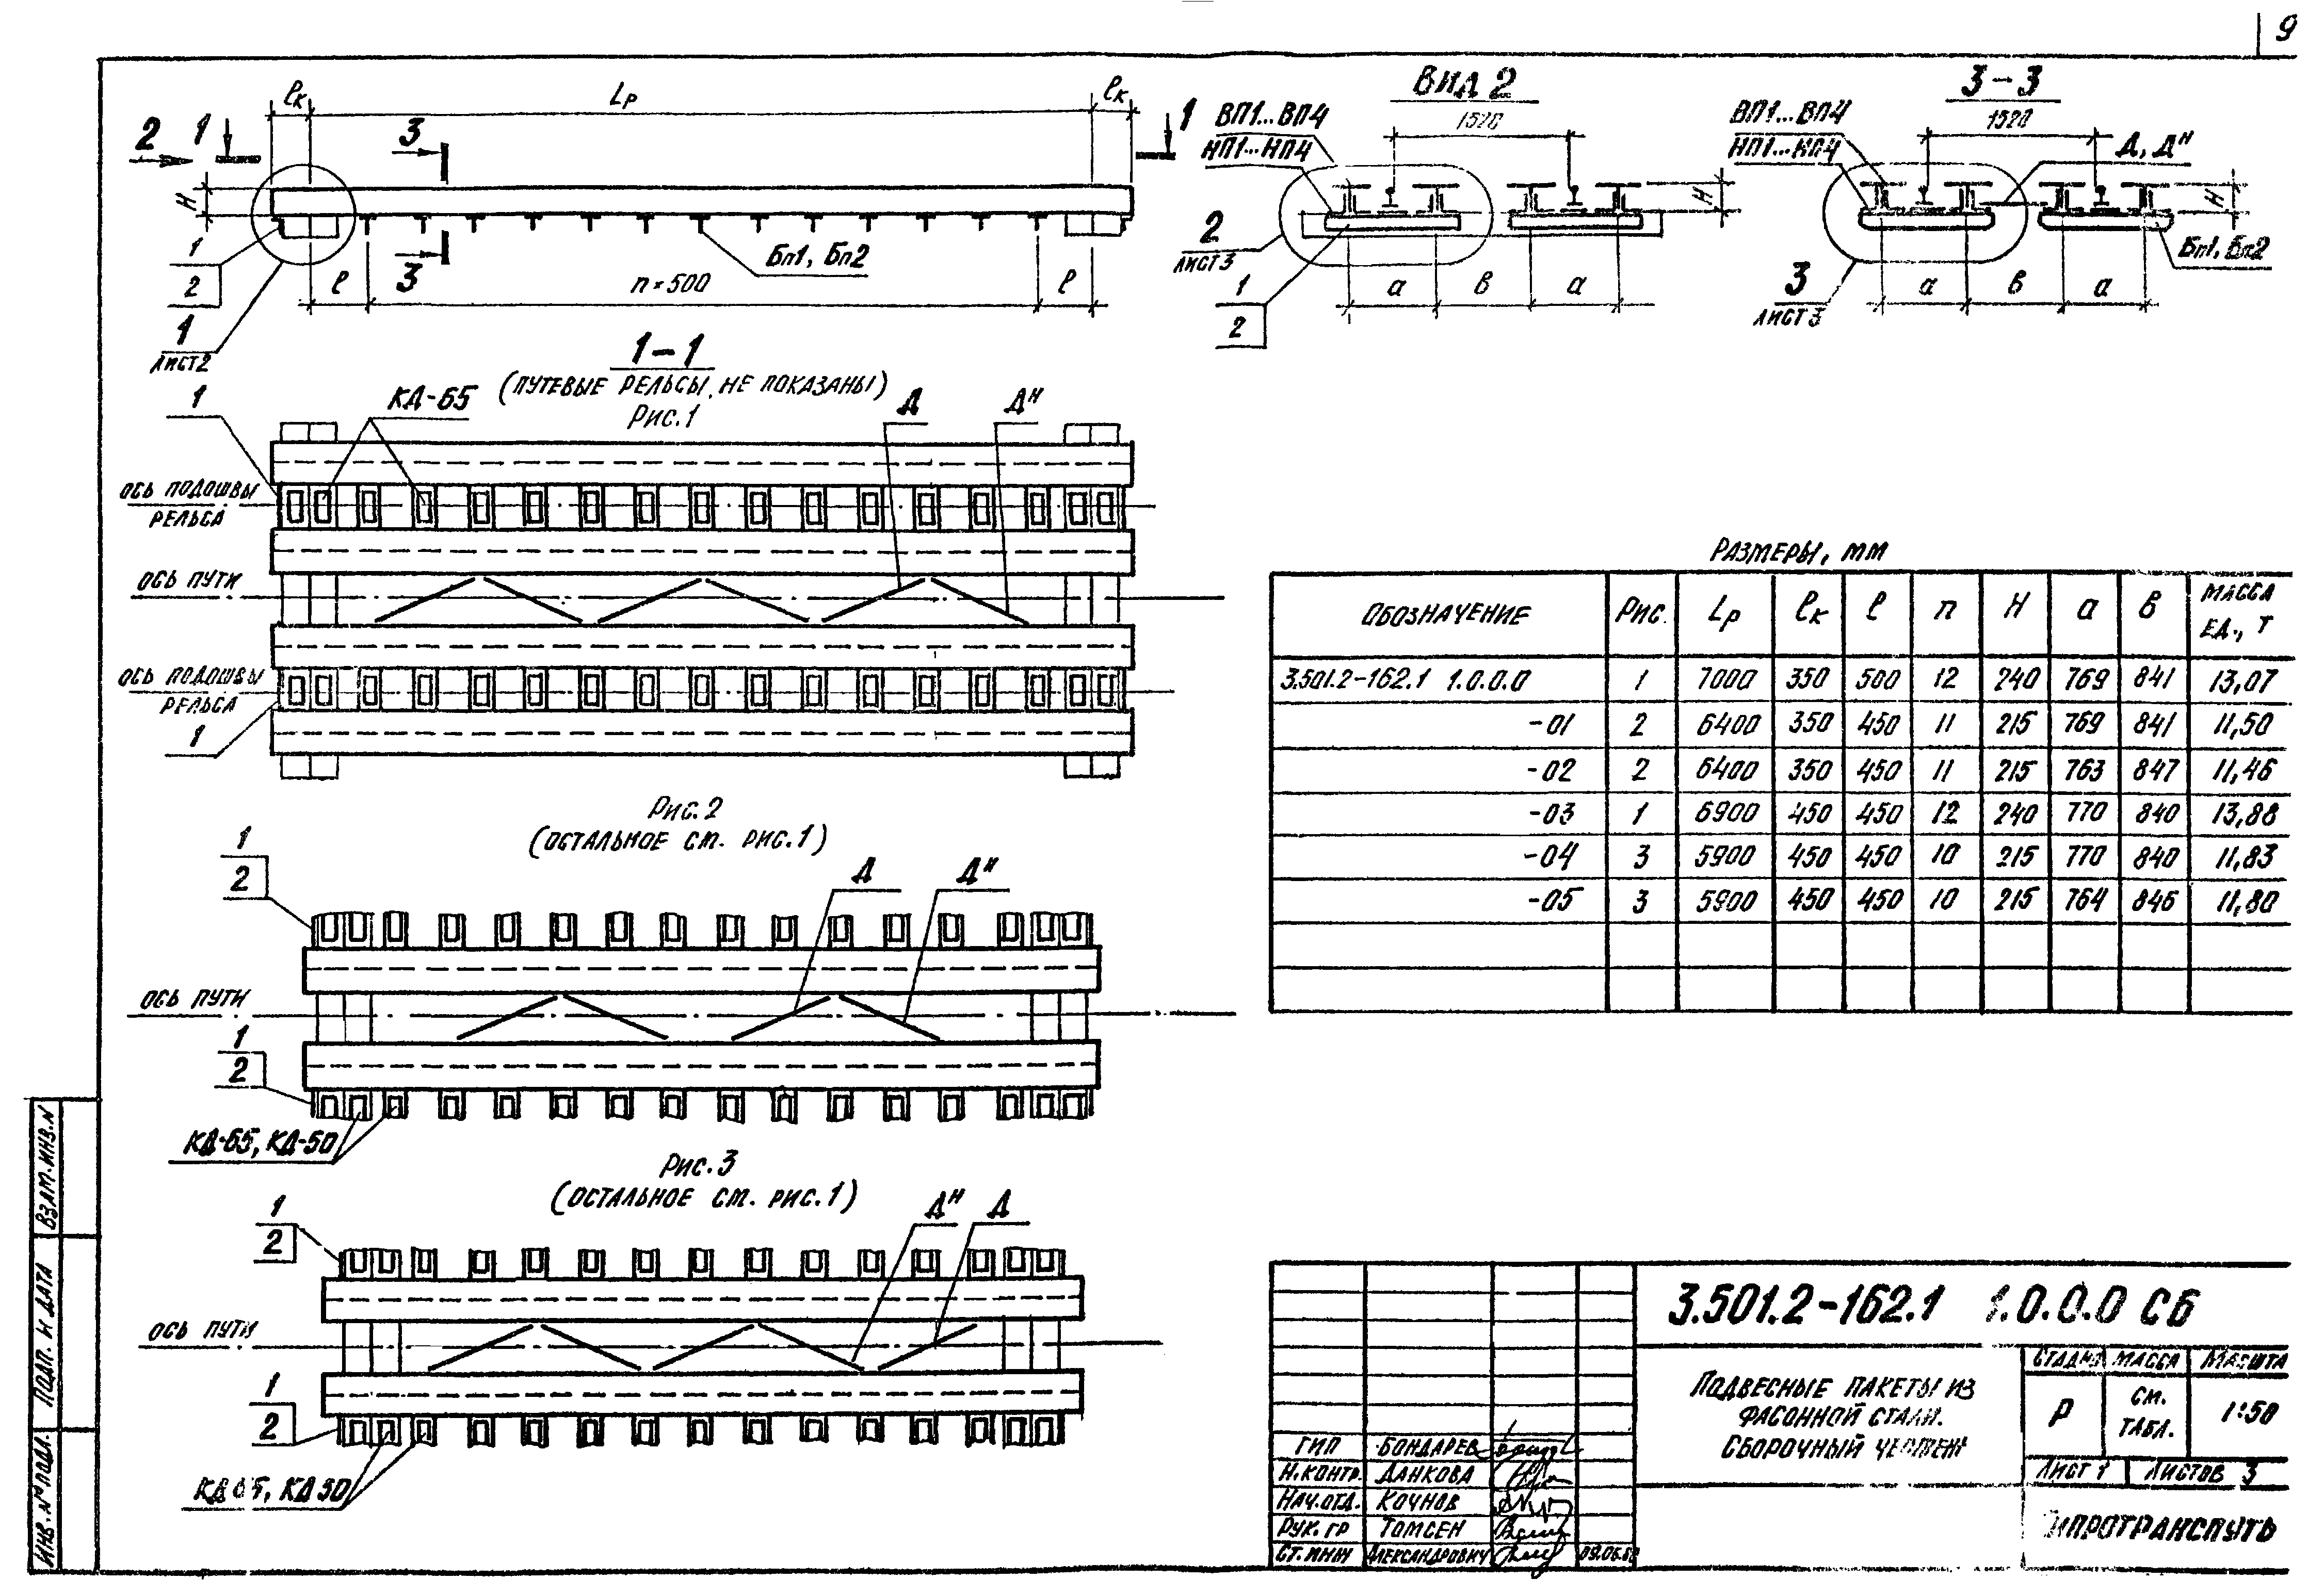 9
ℓк Lр ℓк
2 1 3 1
H
1
2
3
Бп1, Бп2
ℓ n×500 ℓ
1
ЛИСТ2
ВИД 2
ВП1...ВП4
НП1...НП4
1520
H
2
ЛИСТ3
1
2
а в а
3-3
ВП1...ВП4
НП1...НП4
1520
Д, Дн
H
Бп1, Бп2
3
ЛИСТ3
а в а
1-1
(ПУТЕВЫЕ РЕЛЬСЫ НЕ ПОКАЗАНЫ)
Рис.1
1
КД-65
Д
Дн
ОСЬ ПОДОШВЫ
РЕЛЬСА
ОСЬ ПУТИ
ОСЬ ПОДОШВЫ
РЕЛЬСА
1
Рис.2
(ОСТАЛЬНОЕ СМ. РИС.1)
1
2
Д
Дн
ОСЬ ПУТИ
1
2
КД-65, КД-50
Рис.3
(ОСТАЛЬНОЕ СМ. РИС.1)
1
2
Дн
Д
ОСЬ ПУТИ
1
2
КД-65, КД-50
РАЗМЕРЫ, ММ
ОБОЗНАЧЕНИЕ Рис. Lр ℓк ℓ n H а в МАССА ЕД., Т
3.501.2-162.1 1.0.0.0 1 7000 350 500 12 240 769 841 13,07
-01 2 6400 350 450 11 215 769 841 11,50
-02 2 6400 350 450 11 215 763 847 11,46
-03 1 6900 450 450 12 240 770 840 13,88
-04 3 5900 450 450 10 215 770 840 11,83
-05 3 5900 450 450 10 215 764 846 11,80
3.501.2-162.1 1.0.0.0 СБ
ПОДВЕСНЫЕ ПАКЕТЫ ИЗ
ФАСОННОЙ СТАЛИ.
СБОРОЧНЫЙ ЧЕРТЕЖ
СТАДИЯ МАССА МАСШТА
Р СМ. ТАБЛ. 1:50
ЛИСТ 1 ЛИСТОВ 3
ГИПРОТРАНСПУТЬ
ГИП БОНДАРЕВ
Н.КОНТР. ДАНКОВА
НАЧ.ОТД. КОЧНОВ
РУК.ГР ТОМСЕН
СТ.ИНЖ АЛЕКСАНДРОВИЧ
ВЗАМ.ИНВ.N
ПОДП. И ДАТА
ИНВ.№ПОДЛ.